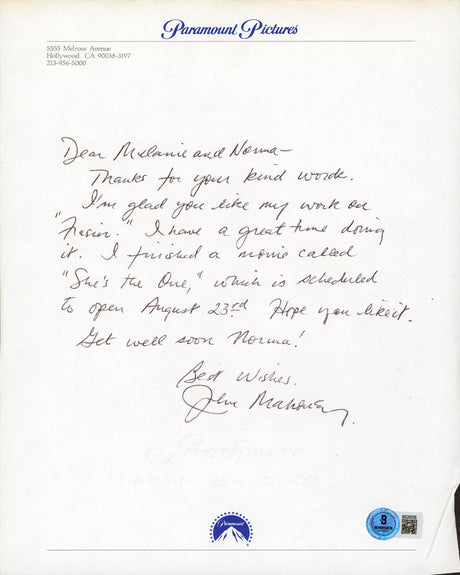 Paramount Pictures
5555 Melrose Avenue
Hollywood CA 90038-3197
213-956-5000
Dear Melanie and Norma—
Thanks for your kind words.
I'm glad you like my work on
"Frasier." I have a great time doing
it. I finished a movie called
"She's the One," which is scheduled
to open August 23rd. Hope you like it.
Get well soon Norma!
Best Wishes.
John Mahoney
Strathmore
WRITING 25% COTTON
Paramount